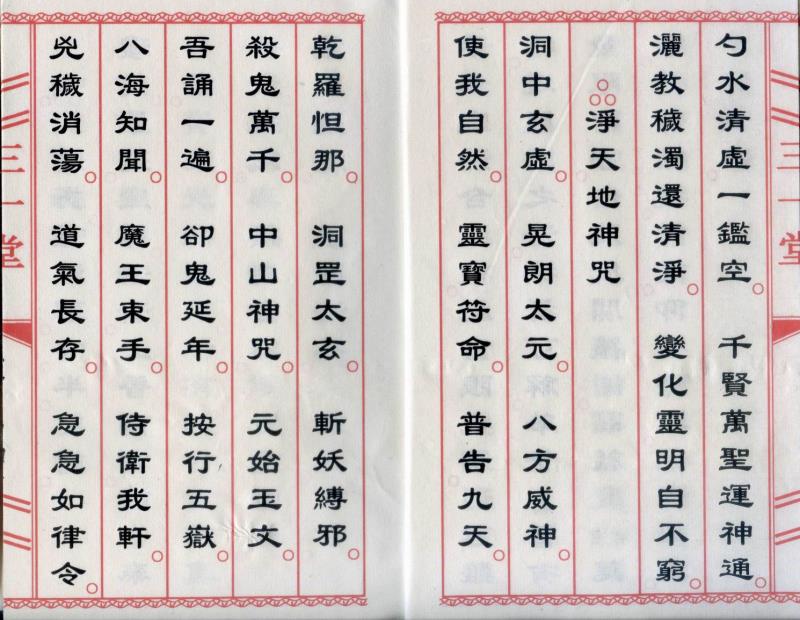 勺水清虛一鑑空。 千賢萬聖運神通。
灑教穢濁還清淨。 變化靈明自不窮。
淨天地神咒
洞中玄虛。 晃朗太元。 八方威神。
使我自然。 靈寶符命。 普告九天。
乾羅怛那。 洞罡太玄。 斬妖縛邪。
殺鬼萬千。 中山神咒。 元始玉文。
吾誦一遍。 卻鬼延年。 按行五嶽。
八海知聞。 魔王束手。 侍衛我軒。
兇穢消蕩。 道氣長存。 急急如律令。
三一堂
三一堂